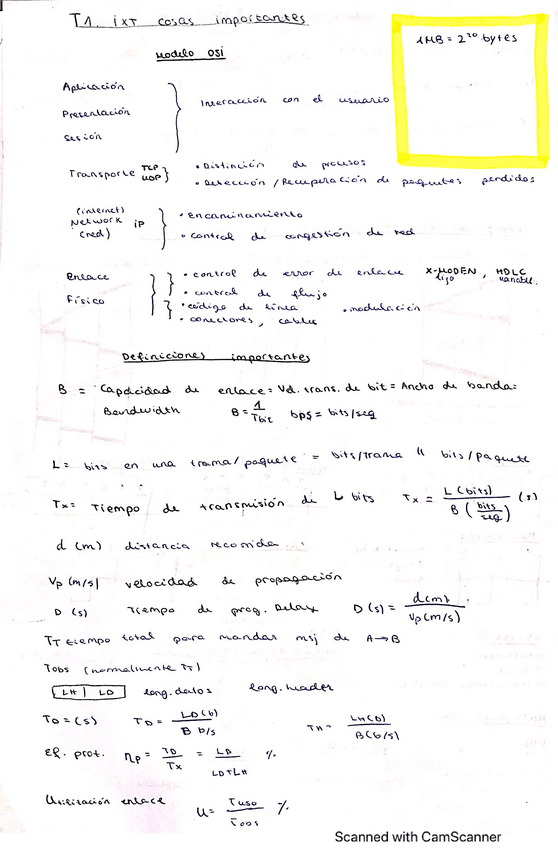 T1. ixt cosas importantes
1MB = 2²⁰ bytes
Modelo OSI
Aplicación
Presentación
Sesión
Interacción con el usuario
Transporte TCP UDP
• Distinción de procesos
• Detección / Recuperación de paquetes perdidos
(internet)
Network IP
(red)
• Encaminamiento
• control de congestión de red
Enlace
• control de error de enlace X-MODEN, HDLC
fijo variable.
• control de flujo
Físico
• código de línea • modulación
• conectores, cables
Definiciones importantes
B = Capacidad de enlace = Vel. trans. de bit = Ancho de banda =
Bandwidth B = 1/Tbit bps = bits/seg
L = bits en una trama/paquete = bits/trama || bits/paquete
Tx = Tiempo de transmisión de L bits Tx = L (bits) / B (bits/seg) (s)
d (m) distancia recorrida
Vp (m/s) velocidad de propagación
D (s) Tiempo de prog. Delay D(s) = d(m) / Vp(m/s)
TT tiempo total para mandar msj de A→B
Tobs (normalmente TT)
LH | LD long. datos long. header
TD = (s) TD = LD(b) / B b/s TH = LH(b) / B(b/s)
Ef. prot. ηp = TD/Tx = LD / LD+LH %
Utilización enlace U = Tuso / Tobs %
Scanned with CamScanner